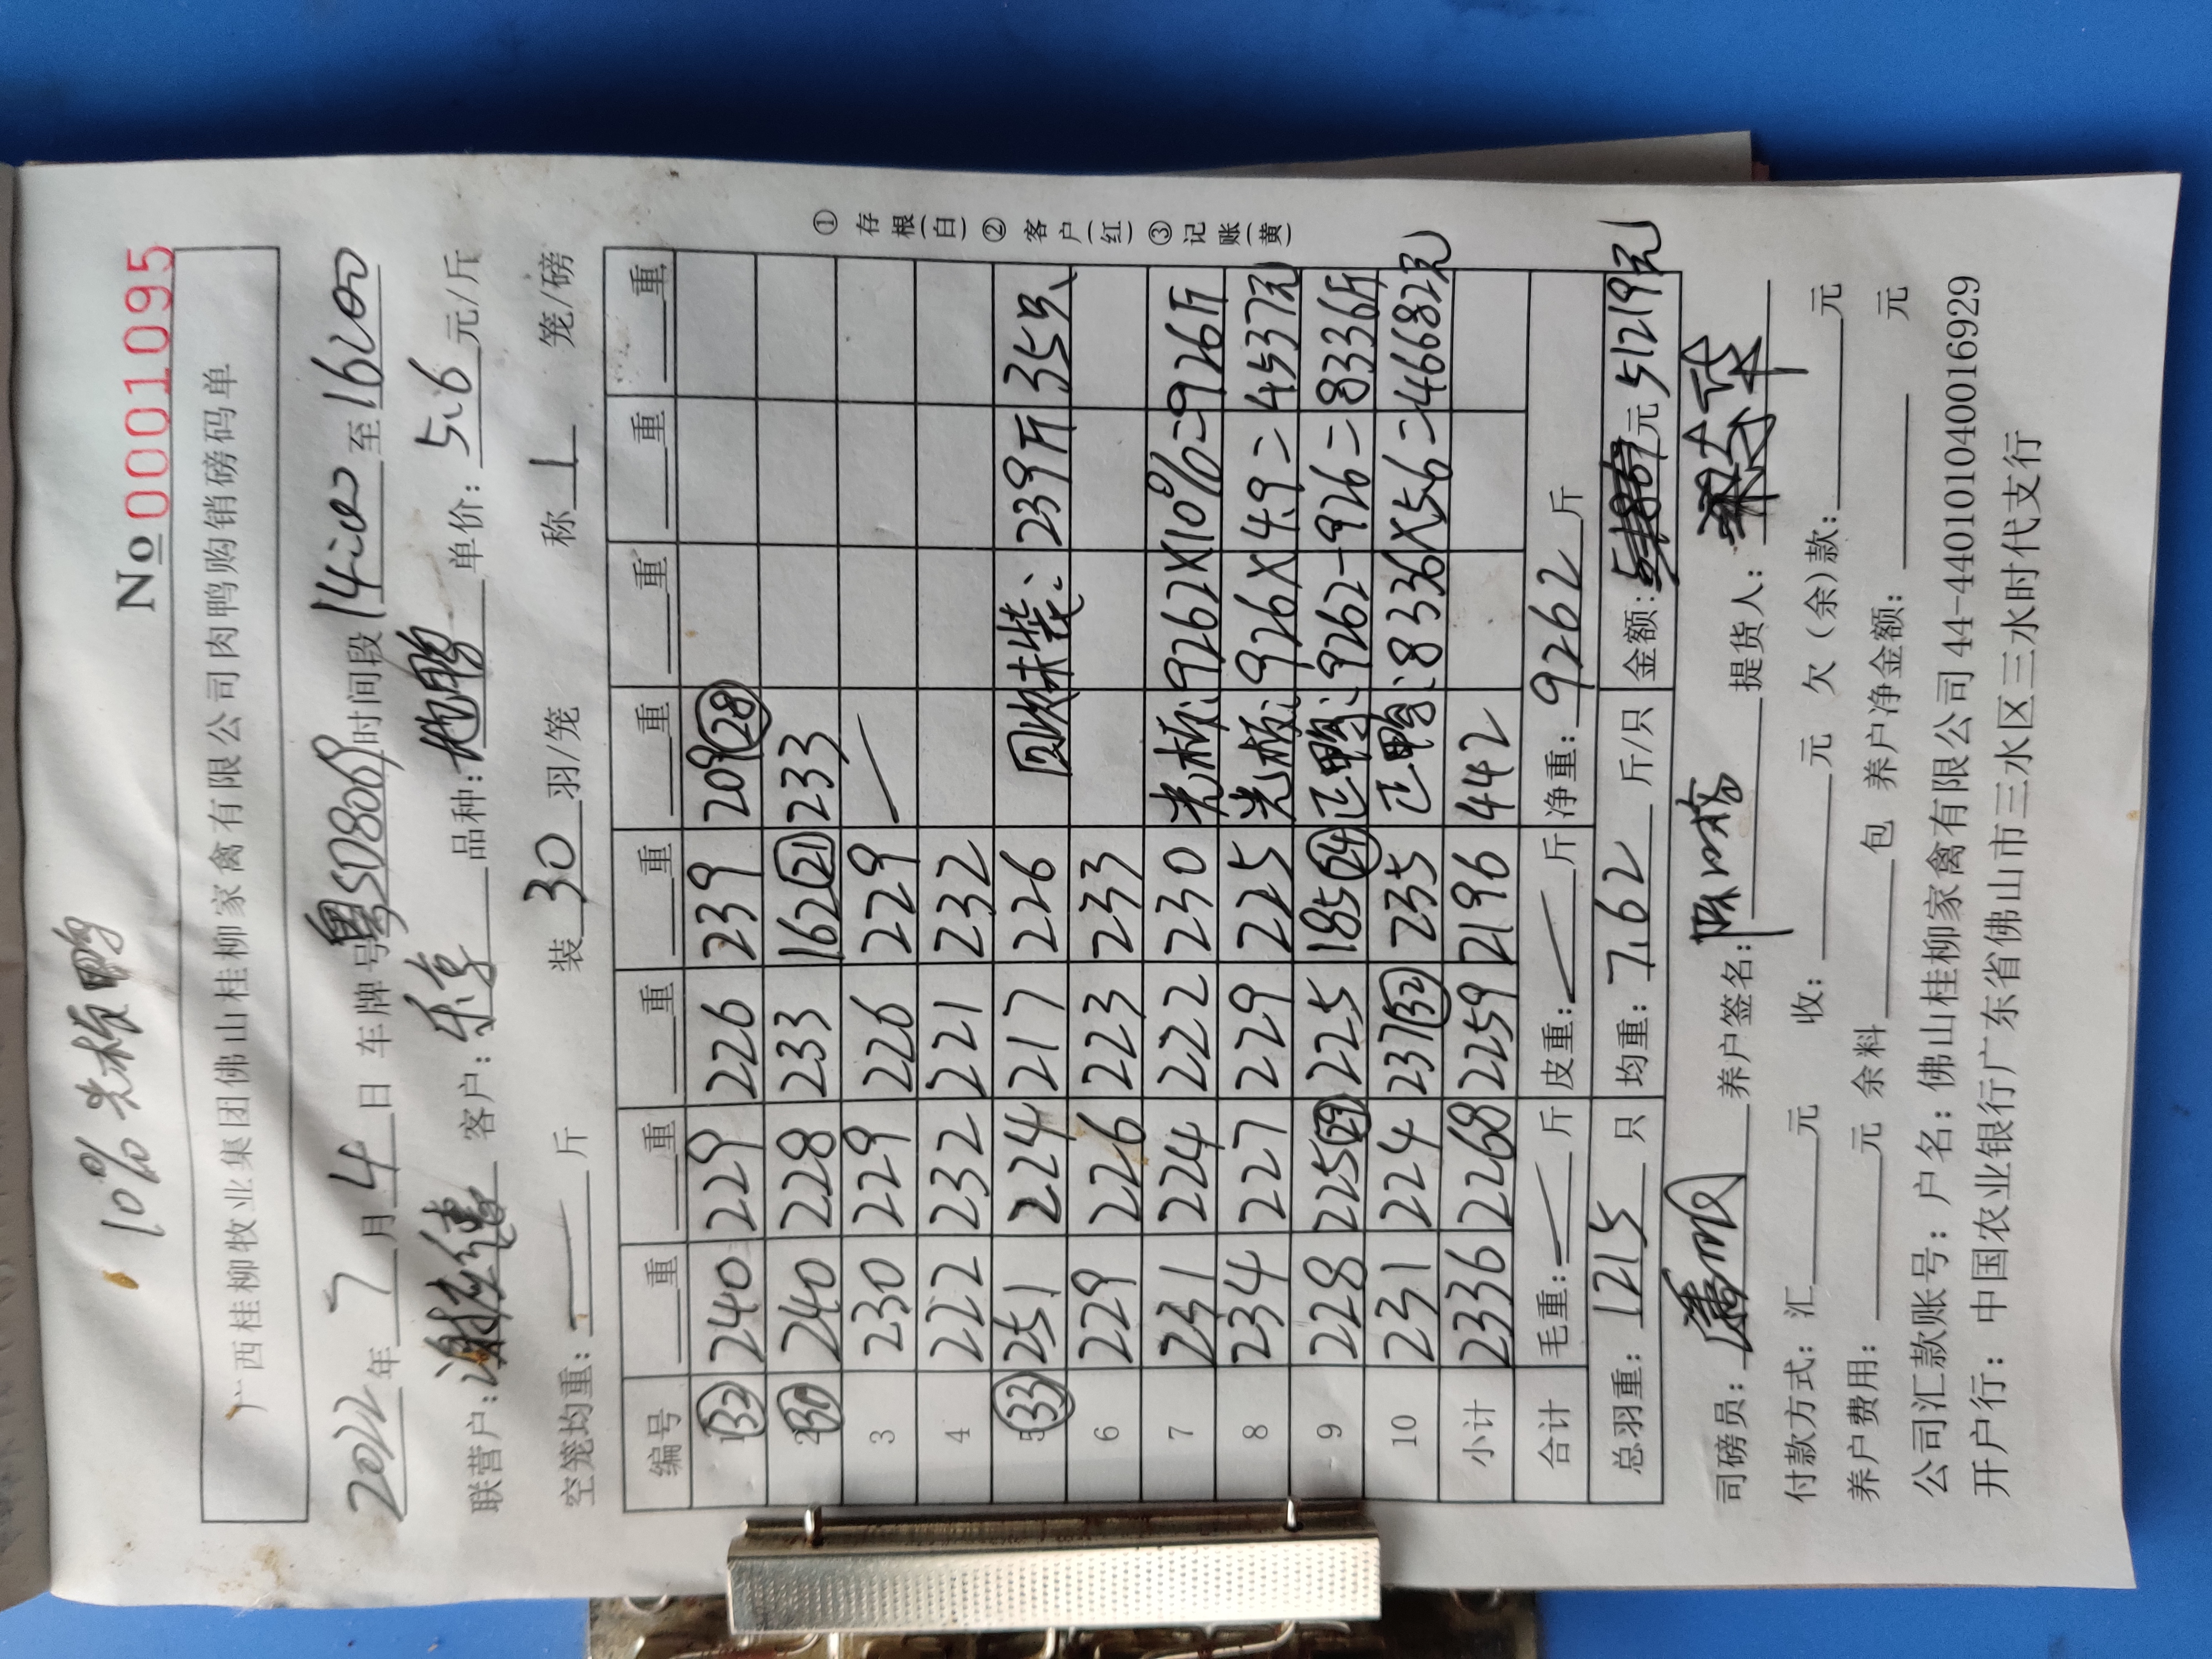 10%光板鸭
No 0001095
广西桂柳牧业集团佛山桂柳家禽有限公司肉鸭购销磅码单
2022年7月4日 车牌号粤SD8069时间段14:00至16:00
联营户: 客户: 品种: 单价:5.6元/斤
空笼均重: 斤 装30羽/笼 称1笼/磅
编号 重 重 重 重 重 重 重 重
1 (32) 240 229 226 239 209(28)
2 (30) 240 228 233 162(21) 233
3 230 229 226 229
4 222 232 221 232
5 (33) 251 224 217 226 239斤 35只
6 229 226 223 233
7 231 224 222 230 光板:9262×10%=926斤
8 234 227 229 225 光板:926×4.9=4537元
9 228 225 225 185(24) 正鸭:9262-926=8336斤
10 231 224 237(32) 235 正鸭:8336×5.6=46682元
小计 2336 2268 2259 2196 442
合计 毛重: 斤 皮重: 斤 净重:9262斤
总羽重:1215只 均重:7.62斤/只 金额: 元 51219元
①存根(白)②客户(红)③记账(黄)
司磅员: 养户签名: 提货人:
付款方式:汇 元 收: 元 欠(余)款: 元
养户费用: 元 余料 包 养户净金额: 元
公司汇款账号:户名:佛山桂柳家禽有限公司44-440101040016929
开户行:中国农业银行广东省佛山市三水区三水时代支行